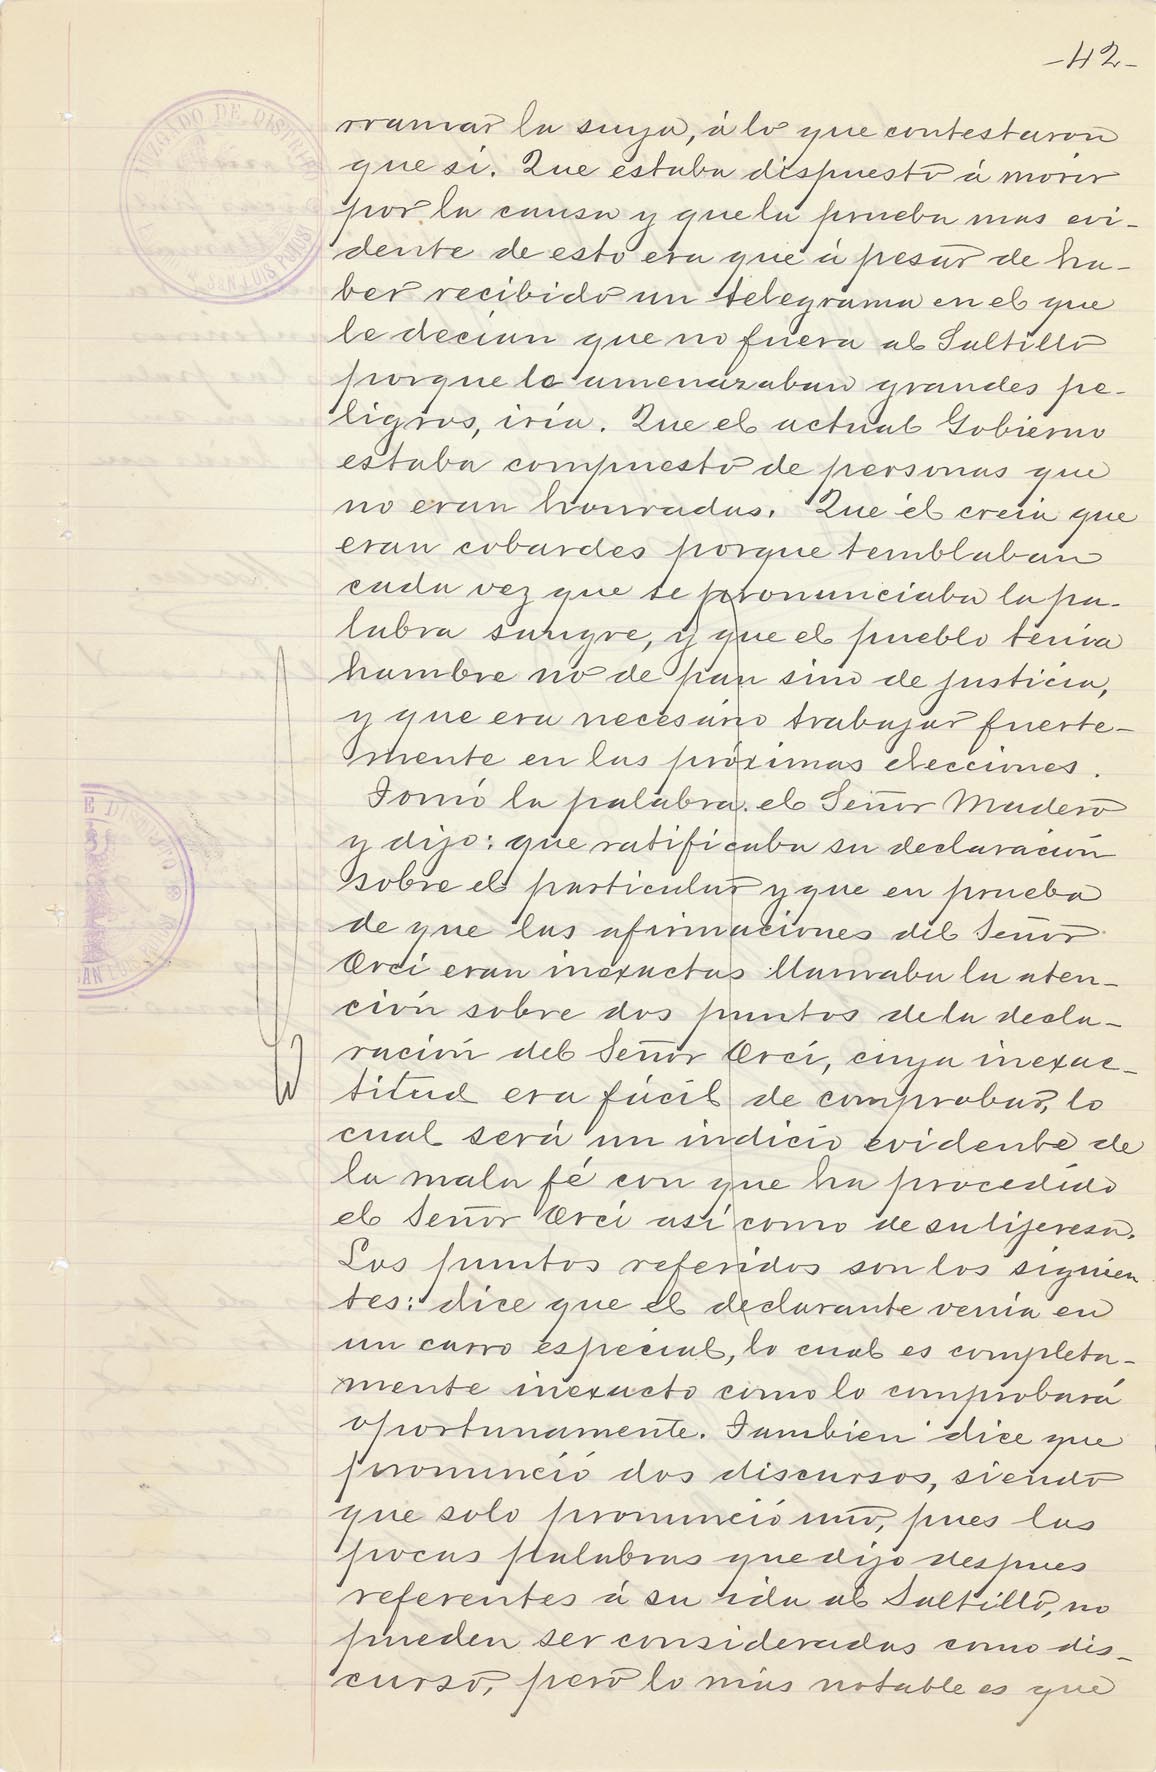 -42-
JUZGADO DE DISTRITO
SAN LUIS POTOSI
rramar la suya, á lo que contestaron
que sí. Que estaba dispuesto á morir
por la causa y que la prueba mas evi-
dente de esto era que á pesar de ha-
ber recibido un telegrama en el que
le decian que no fuera al Saltillo
porque lo amenazaban grandes pe-
ligros, iría. Que el actual Gobierno
estaba compuesto de personas que
no eran honradas. Que él creia que
eran cobardes porque temblaban
cada vez que se pronunciaba la pa-
labra sangre, y que el pueblo teniva
hambre no de pan sino de justicia,
y que era necesário trabajar fuerte-
mente en las próximas elecciones.
Tomó la palabra el Señor Madero
y dijo: que ratificaba su declaración
sobre el particular y que en prueba
de que las afirmaciones del Señor
Orcí eran inexactas llamaba la aten-
ción sobre dos puntos de la decla-
ración del Señor Orcí, cuya inexac-
titud era fácil de comprobar, lo
cual será un indicio evidente de
la mala fé con que ha procedido
el Señor Orcí así como de su lijeresa.
Los puntos referidos son los siguien
tes: dice que el declarante venía en
un carro especial, lo cual es completa-
mente inexacto como lo comprobará
oportunamente. Tambien dice que
pronunció dos discursos, siendo
que solo pronunció uno, pues las
pocas palabras que dijo despues
referentes á su ida al Saltillo, no
pueden ser consideradas como dis-
curso, pero lo más notable es que